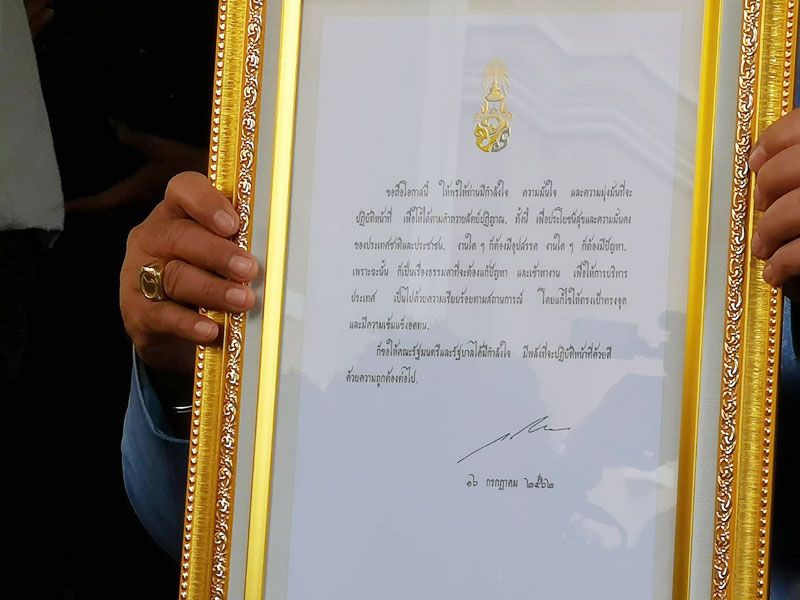 ขอถือโอกาสนี้ ให้พรให้ท่านมีกำลังใจ ความมั่นใจ และความมุ่งมั่นที่จะ
ปฏิบัติหน้าที่ เพื่อให้ได้ตามคำถวายสัตย์ปฏิญาณ. ทั้งนี้ เพื่อประโยชน์สุขและความมั่นคง
ของประเทศชาติและประชาชน. งานใด ๆ ก็ต้องมีอุปสรรค งานใด ๆ ก็ต้องมีปัญหา.
เพราะฉะนั้น ก็เป็นเรื่องธรรมดาที่จะต้องแก้ปัญหา และเข้าทำงาน เพื่อให้การบริหาร
ประเทศ เป็นไปด้วยความเรียบร้อยตามสถานการณ์ โดยแก้ไขให้ตรงเป้าตรงจุด
และมีความเข้มแข็งอดทน.
ก็ขอให้คณะรัฐมนตรีและรัฐบาลได้มีกำลังใจ มีพลังที่จะปฏิบัติหน้าที่ด้วยดี
ด้วยความถูกต้องต่อไป.
๑๖ กรกฎาคม ๒๕๖๒